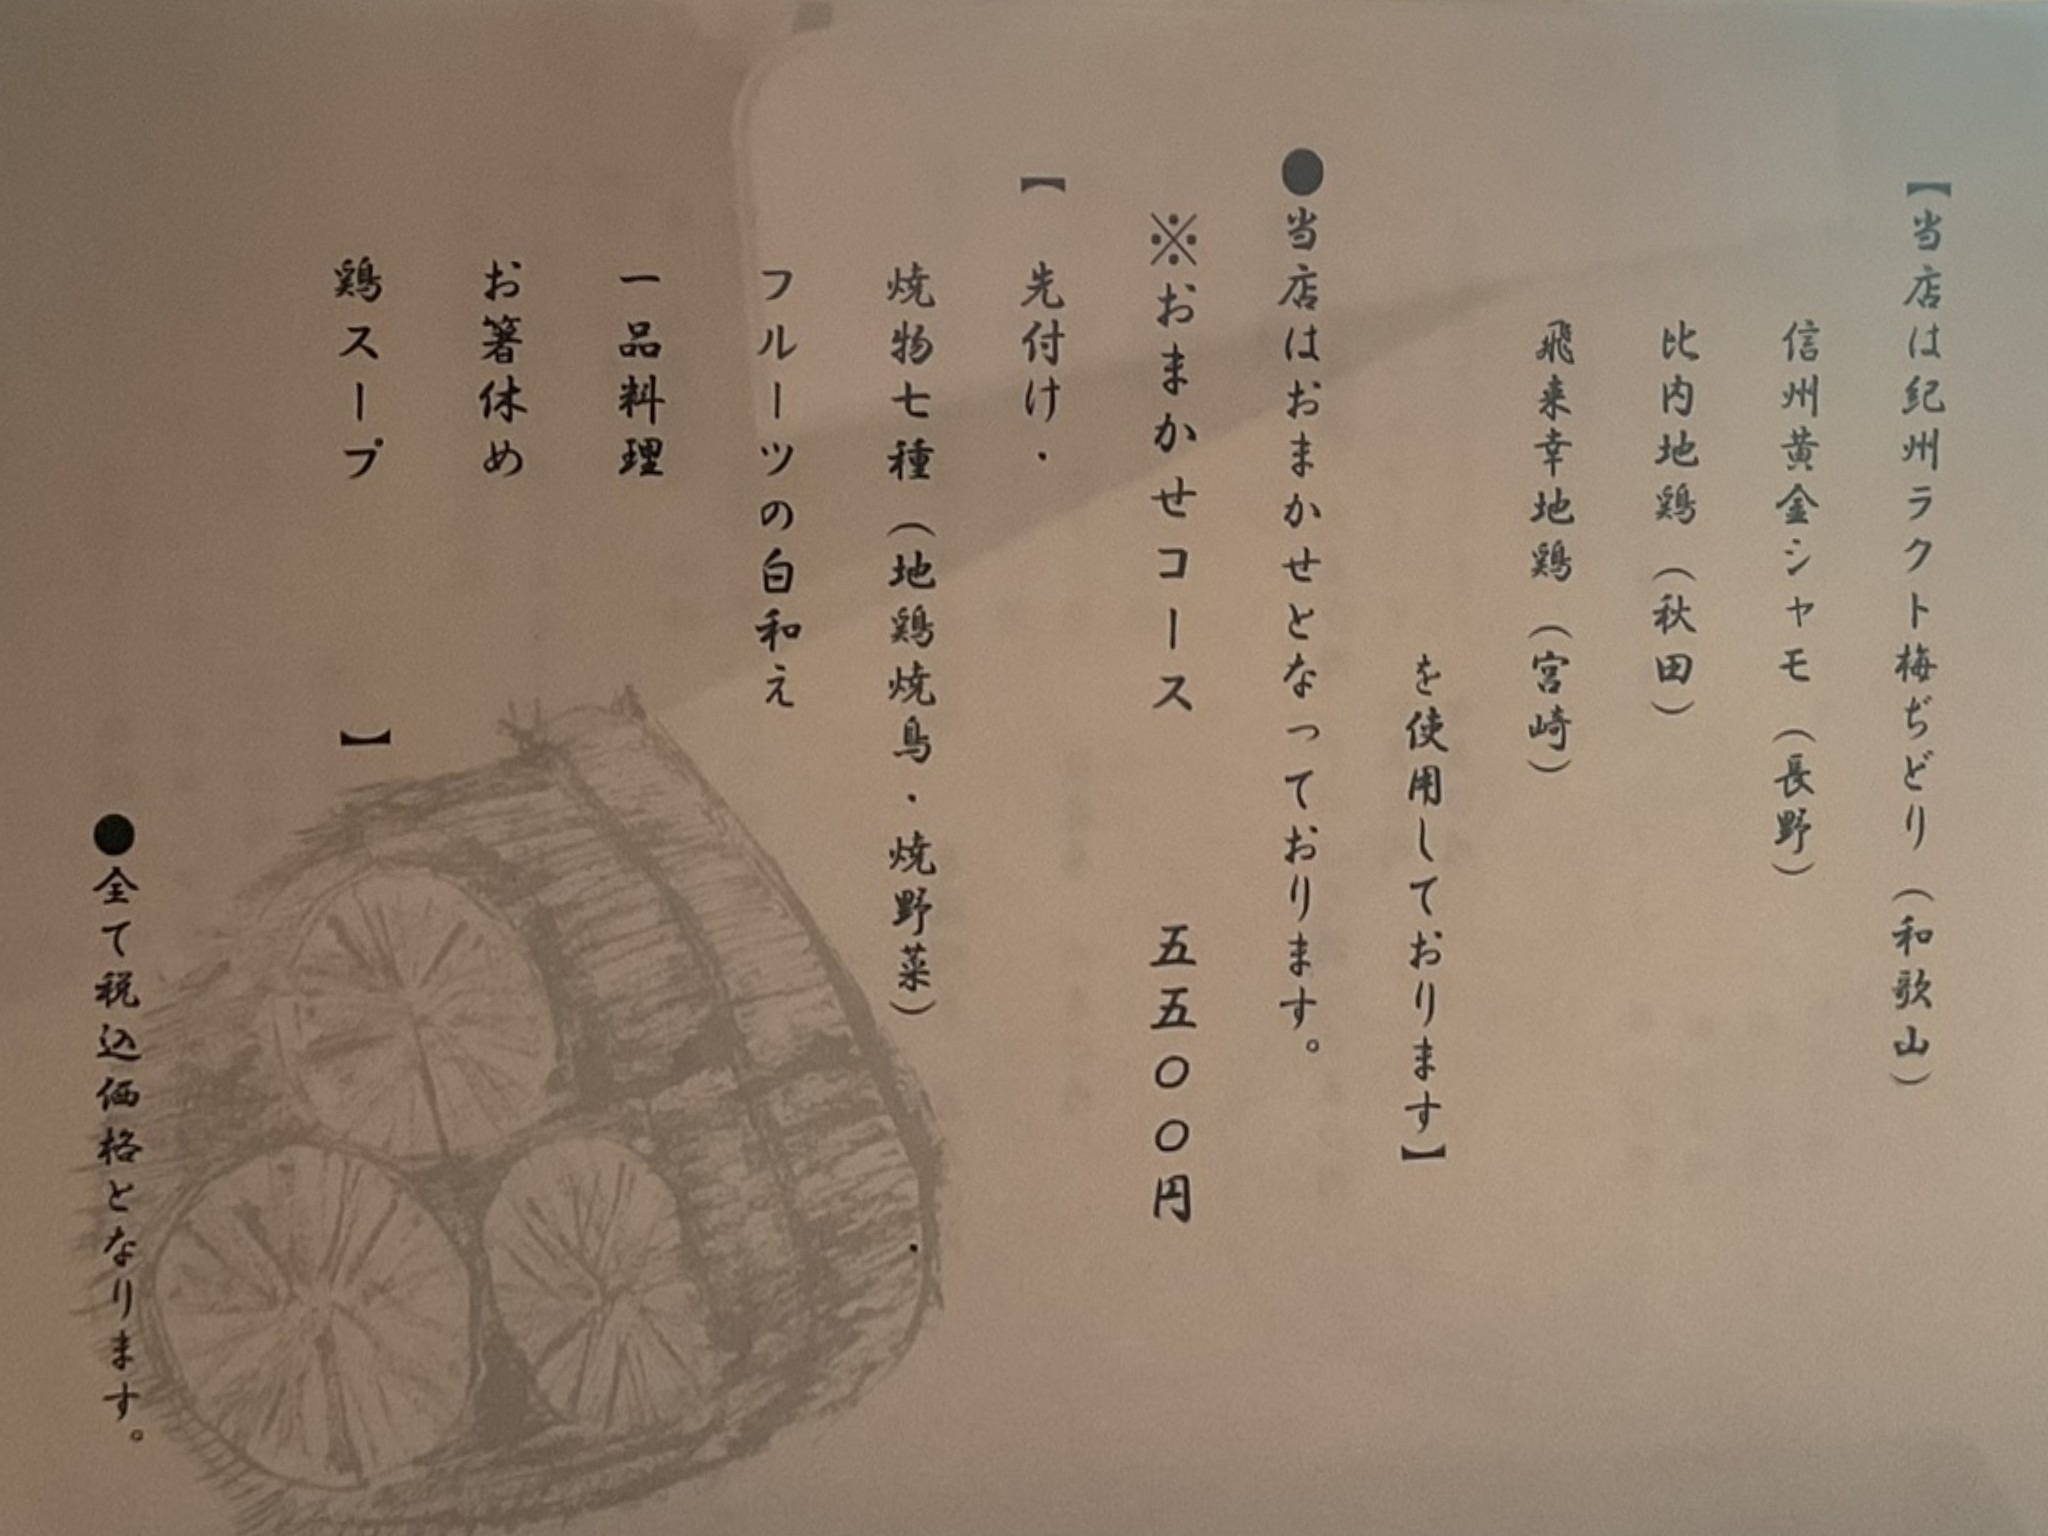 【当店は紀州ラクト梅ぢどり（和歌山）
信州黄金シャモ（長野）
比内地鶏（秋田）
飛来幸地鶏（宮崎）
を使用しております】
●当店はおまかせとなっております。
※おまかせコース　五五〇〇円
【 先付け・
焼物七種（地鶏焼鳥・焼野菜）・
フルーツの白和え
一品料理
お箸休め
鶏スープ 】
●全て税込価格となります。